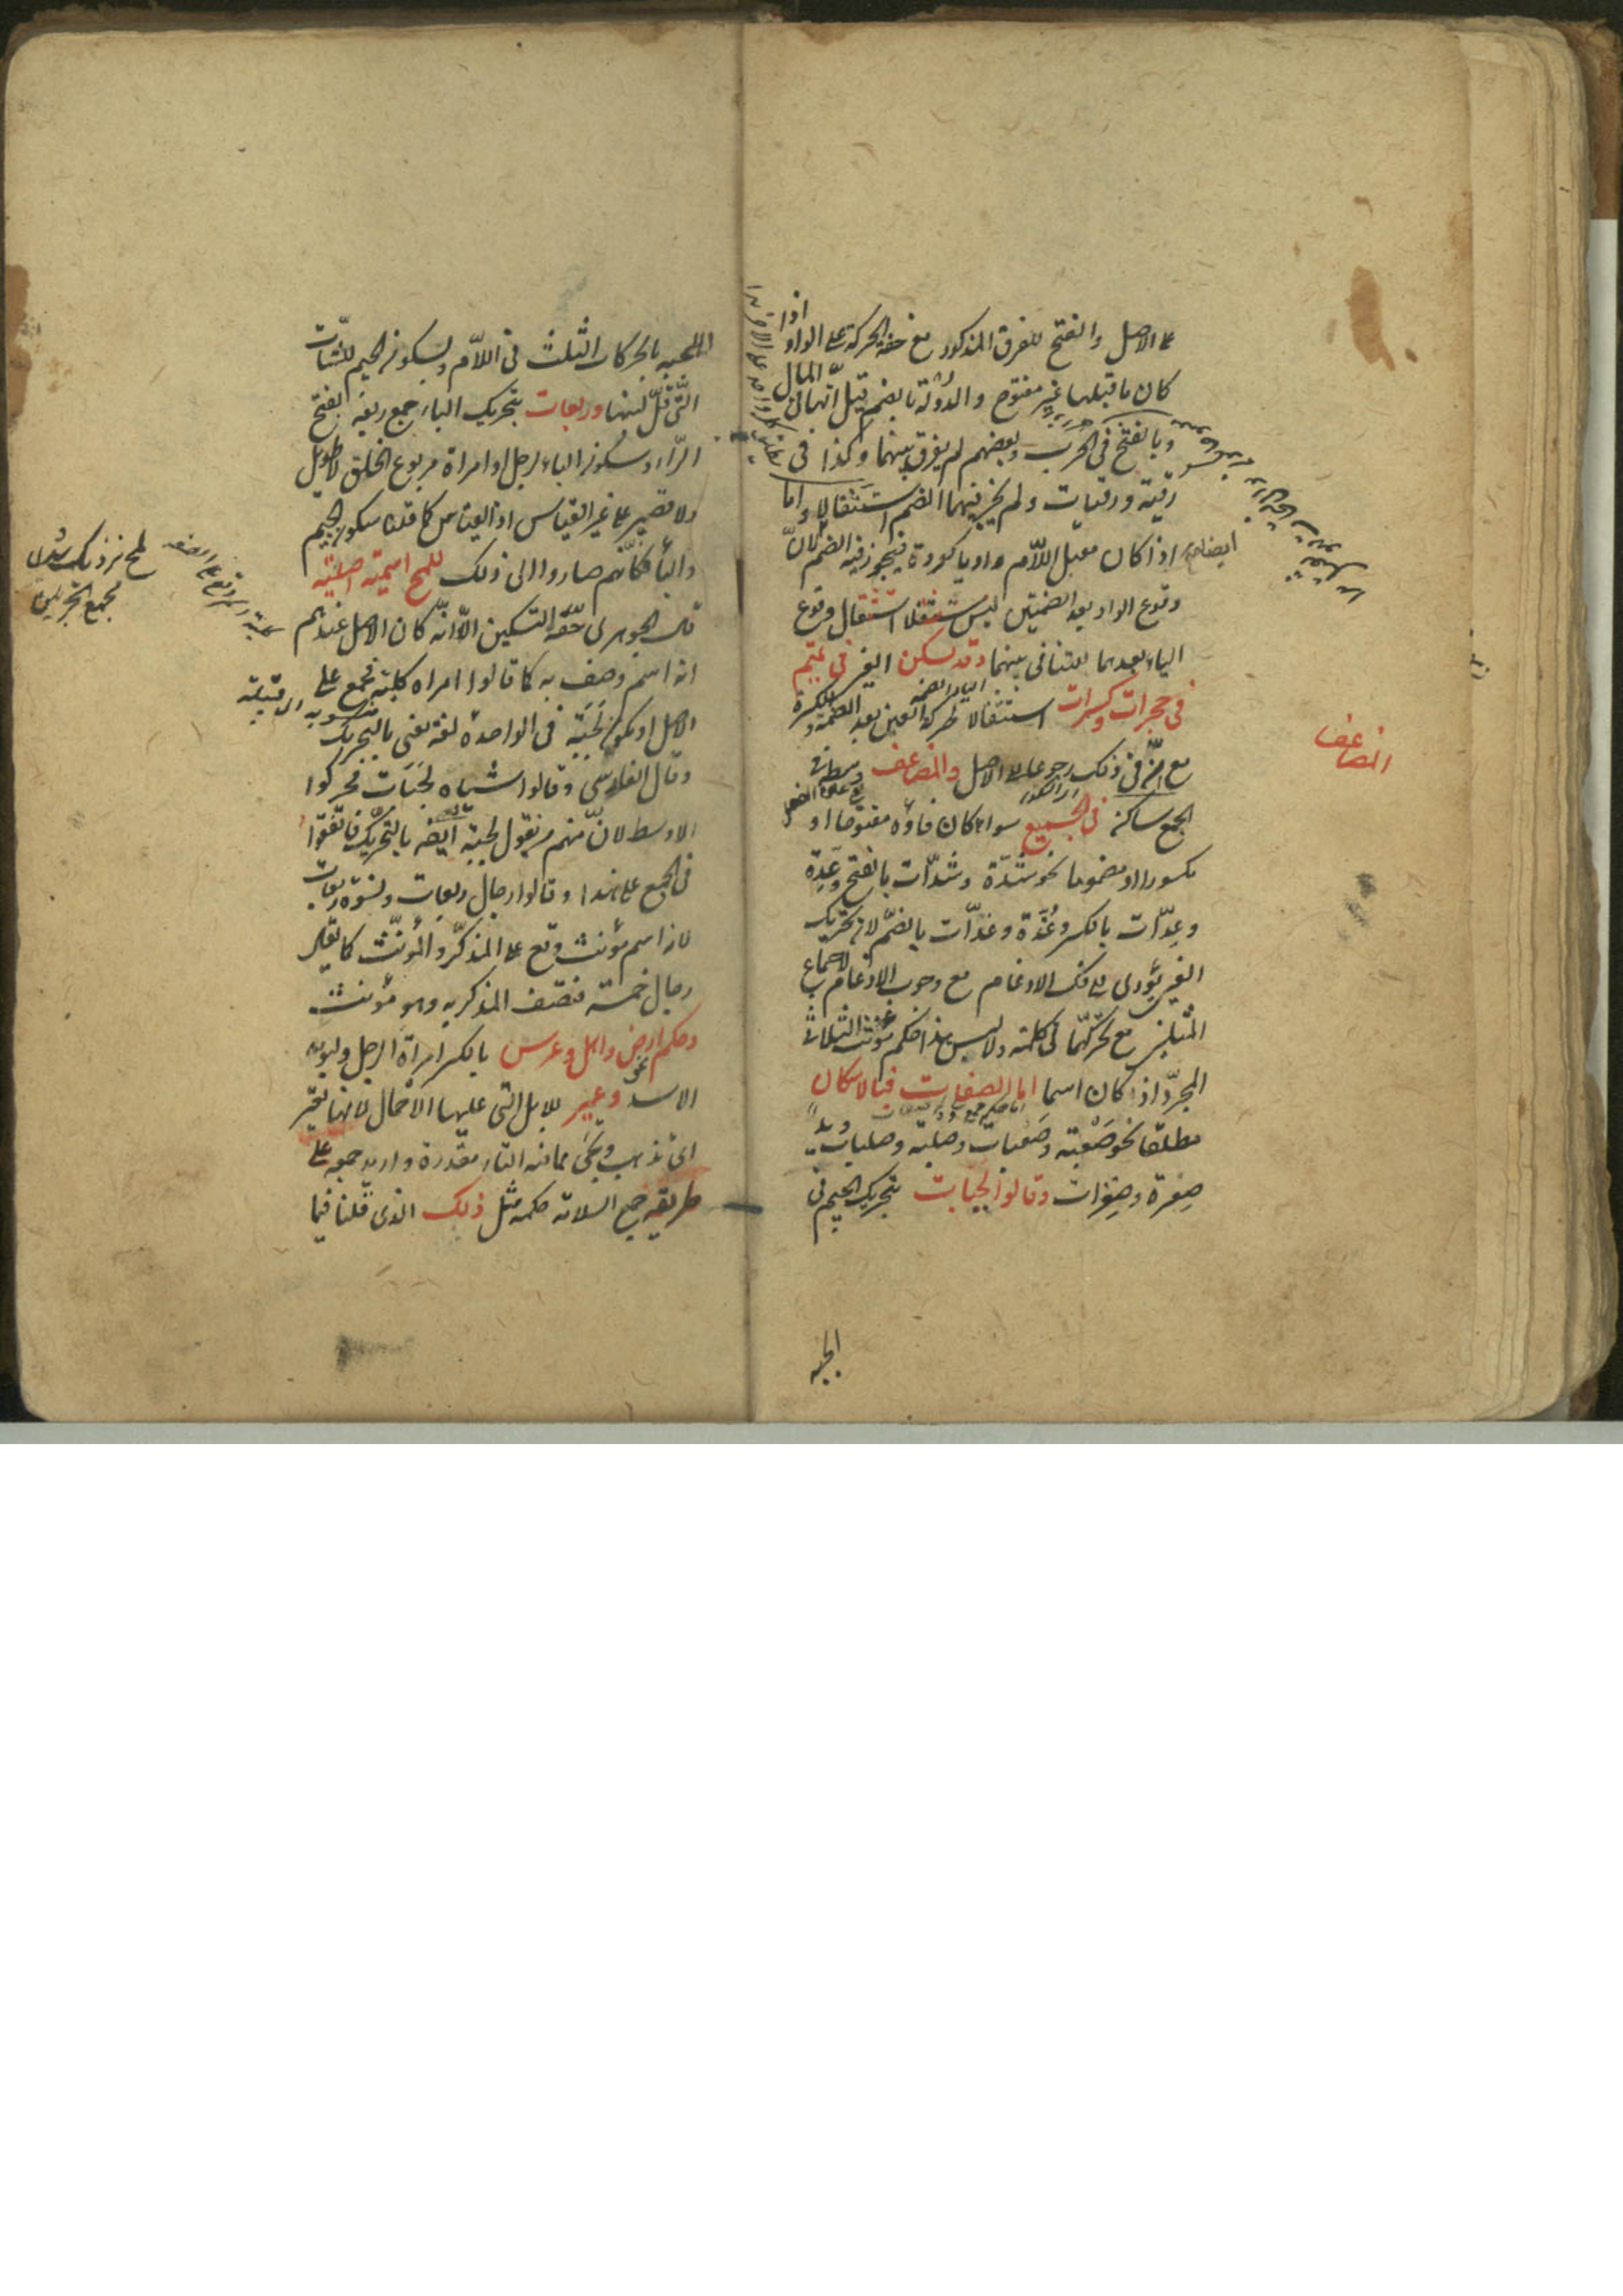 على الاصل والفتح للفرق المذكور مع خفة الحركة على الواو اذا
كان ما قبلها غير مفتوح والدولة بالضم قيل انها فى المال
وبالفتح فى الحرب وبعضهم لم يفرق بينهما وكذا فى
رقية ورقيات ولم يجز فيهما الضم استثقالا واما
اذا كان معتل اللام واويا كعروة فيجوز فيه الضم لان
وقوع الواو بعد الضمتين ليس مستثقلا استثقال وقوع
الياء بعدهما للتنافى بينهما وقد تسكن العين فى تميم
فى حجرات وكسرات استثقالا لحركة العين بعد الضمة والكسرة
مع ان فى ذلك رجوعا الى الاصل والمضاعف
الجمع ساكنة فى الجميع سواء كان فاؤه مفتوحا او
مكسورا او مضموما نحو شدة وشدات بالفتح وعدة
وعدات بالكسر وغدة وغدات بالضم لان تحريك
العين يؤدى الى فك الادغام مع وجوب الادغام لاجتماع
المثلين مع تحركهما فى كلمة وليس هذا حكم مؤنث الثلاثى
المجرد اذا كان اسما اما الصفات فبالاسكان
مطلقا نحو صعبة وصعبات وصلبة وصلبات
صفرة وصفرات وقالوا لجبات بتحريك الجيم فى
الجبه
المضاعف
اللجبة بالحركات الثلث فى اللام وبسكون الجيم للشات
التى قل لبنها وربعات بتحريك الباء جمع ربعة بفتح
الراء وسكون الباء لرجل او امراة مربوع الخلق لا طويل
ولا قصير على غير القياس اذ القياس كما قلنا سكون الجيم
والباء فكأنهم صاروا الى ذلك للمح اسمية اصلية
قال الجوهرى حقه التسكين الا انه كان الاصل عندهم
انه اسم وصف به كما قالوا امراة كلبة فجمع على
الاصل او يكون لجبة فى الواحدة لغة يعنى بالتحريك
وقال الفارسى وقالوا شياه لجبات فحركوا
الاوسط لان منهم من يقول لجبة ايضا بالتحريك فاتفقوا
فى الجمع على هذا وقالوا رجال ربعات ونسوة ربعات
لانه اسم مؤنث وقع على المذكر والمؤنث كما يقال
رجال خمسة فتصف المذكر به وهو مؤنث
وحكم نحو ارض واهل وعرس بالكسر امراة الرجل ولبوة
الاسد وعير للابل التى عليها الاحمال لانها تعير
اى تذهب وتجئ مما فيه التاء مقدرة واريد جمعه على
طريقة جمع السلامة حكمه مثل ذلك الذى قلنا فيما